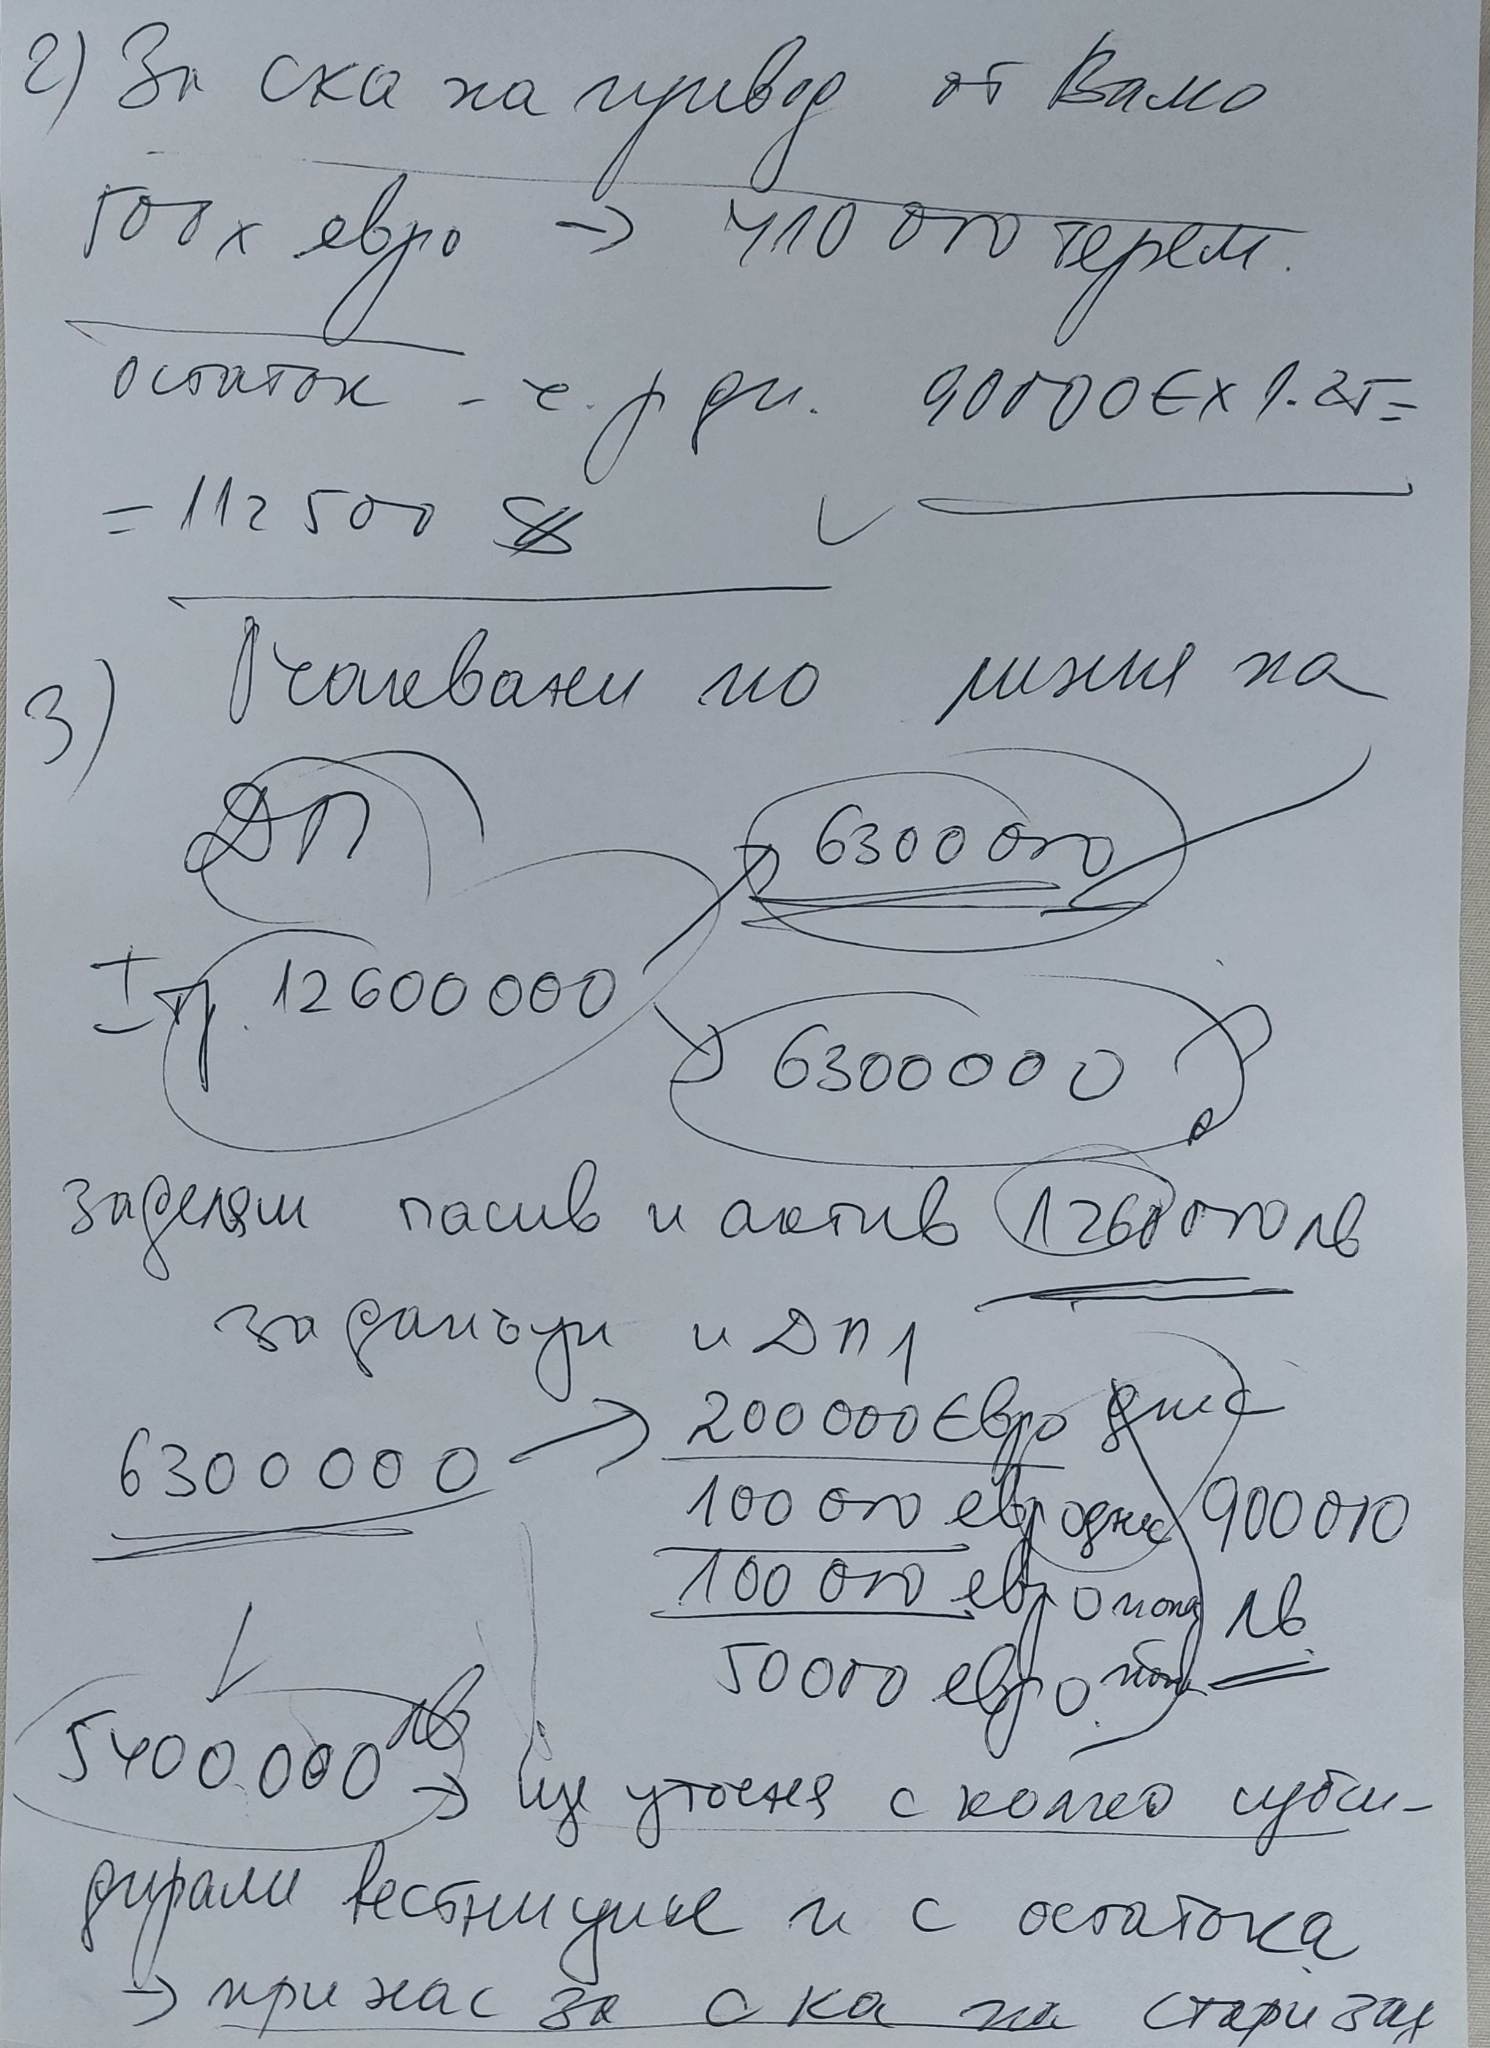 2) За ска на привод от Вамо
500х евро → 410 000 терем.
остаток - е. р дн. 90000€ x 1.25=
= 112 500
3) Очаквани по линия на
ДП 6300 000
I п. 12600 000
6300000
заделям пасив и актив 1260 000 лв
за данъци и ДП 1
6300000 → 200000 Евро днес
100 000 евро днес 900 000
100 000 евро лв
50000 евро
5400.000 лв → ще уточня с колко субси-
дирали вестниците и с остатока
→ при нас за с ка на